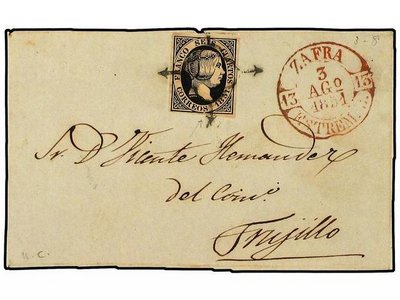 FRANCO SEIS CUARTOS
CORREOS 1851
ZAFRA
3
AGO
1851
13 13
ESTREM.
Sr. Dn. Vicente Hernandez
del Como.
Trujillo